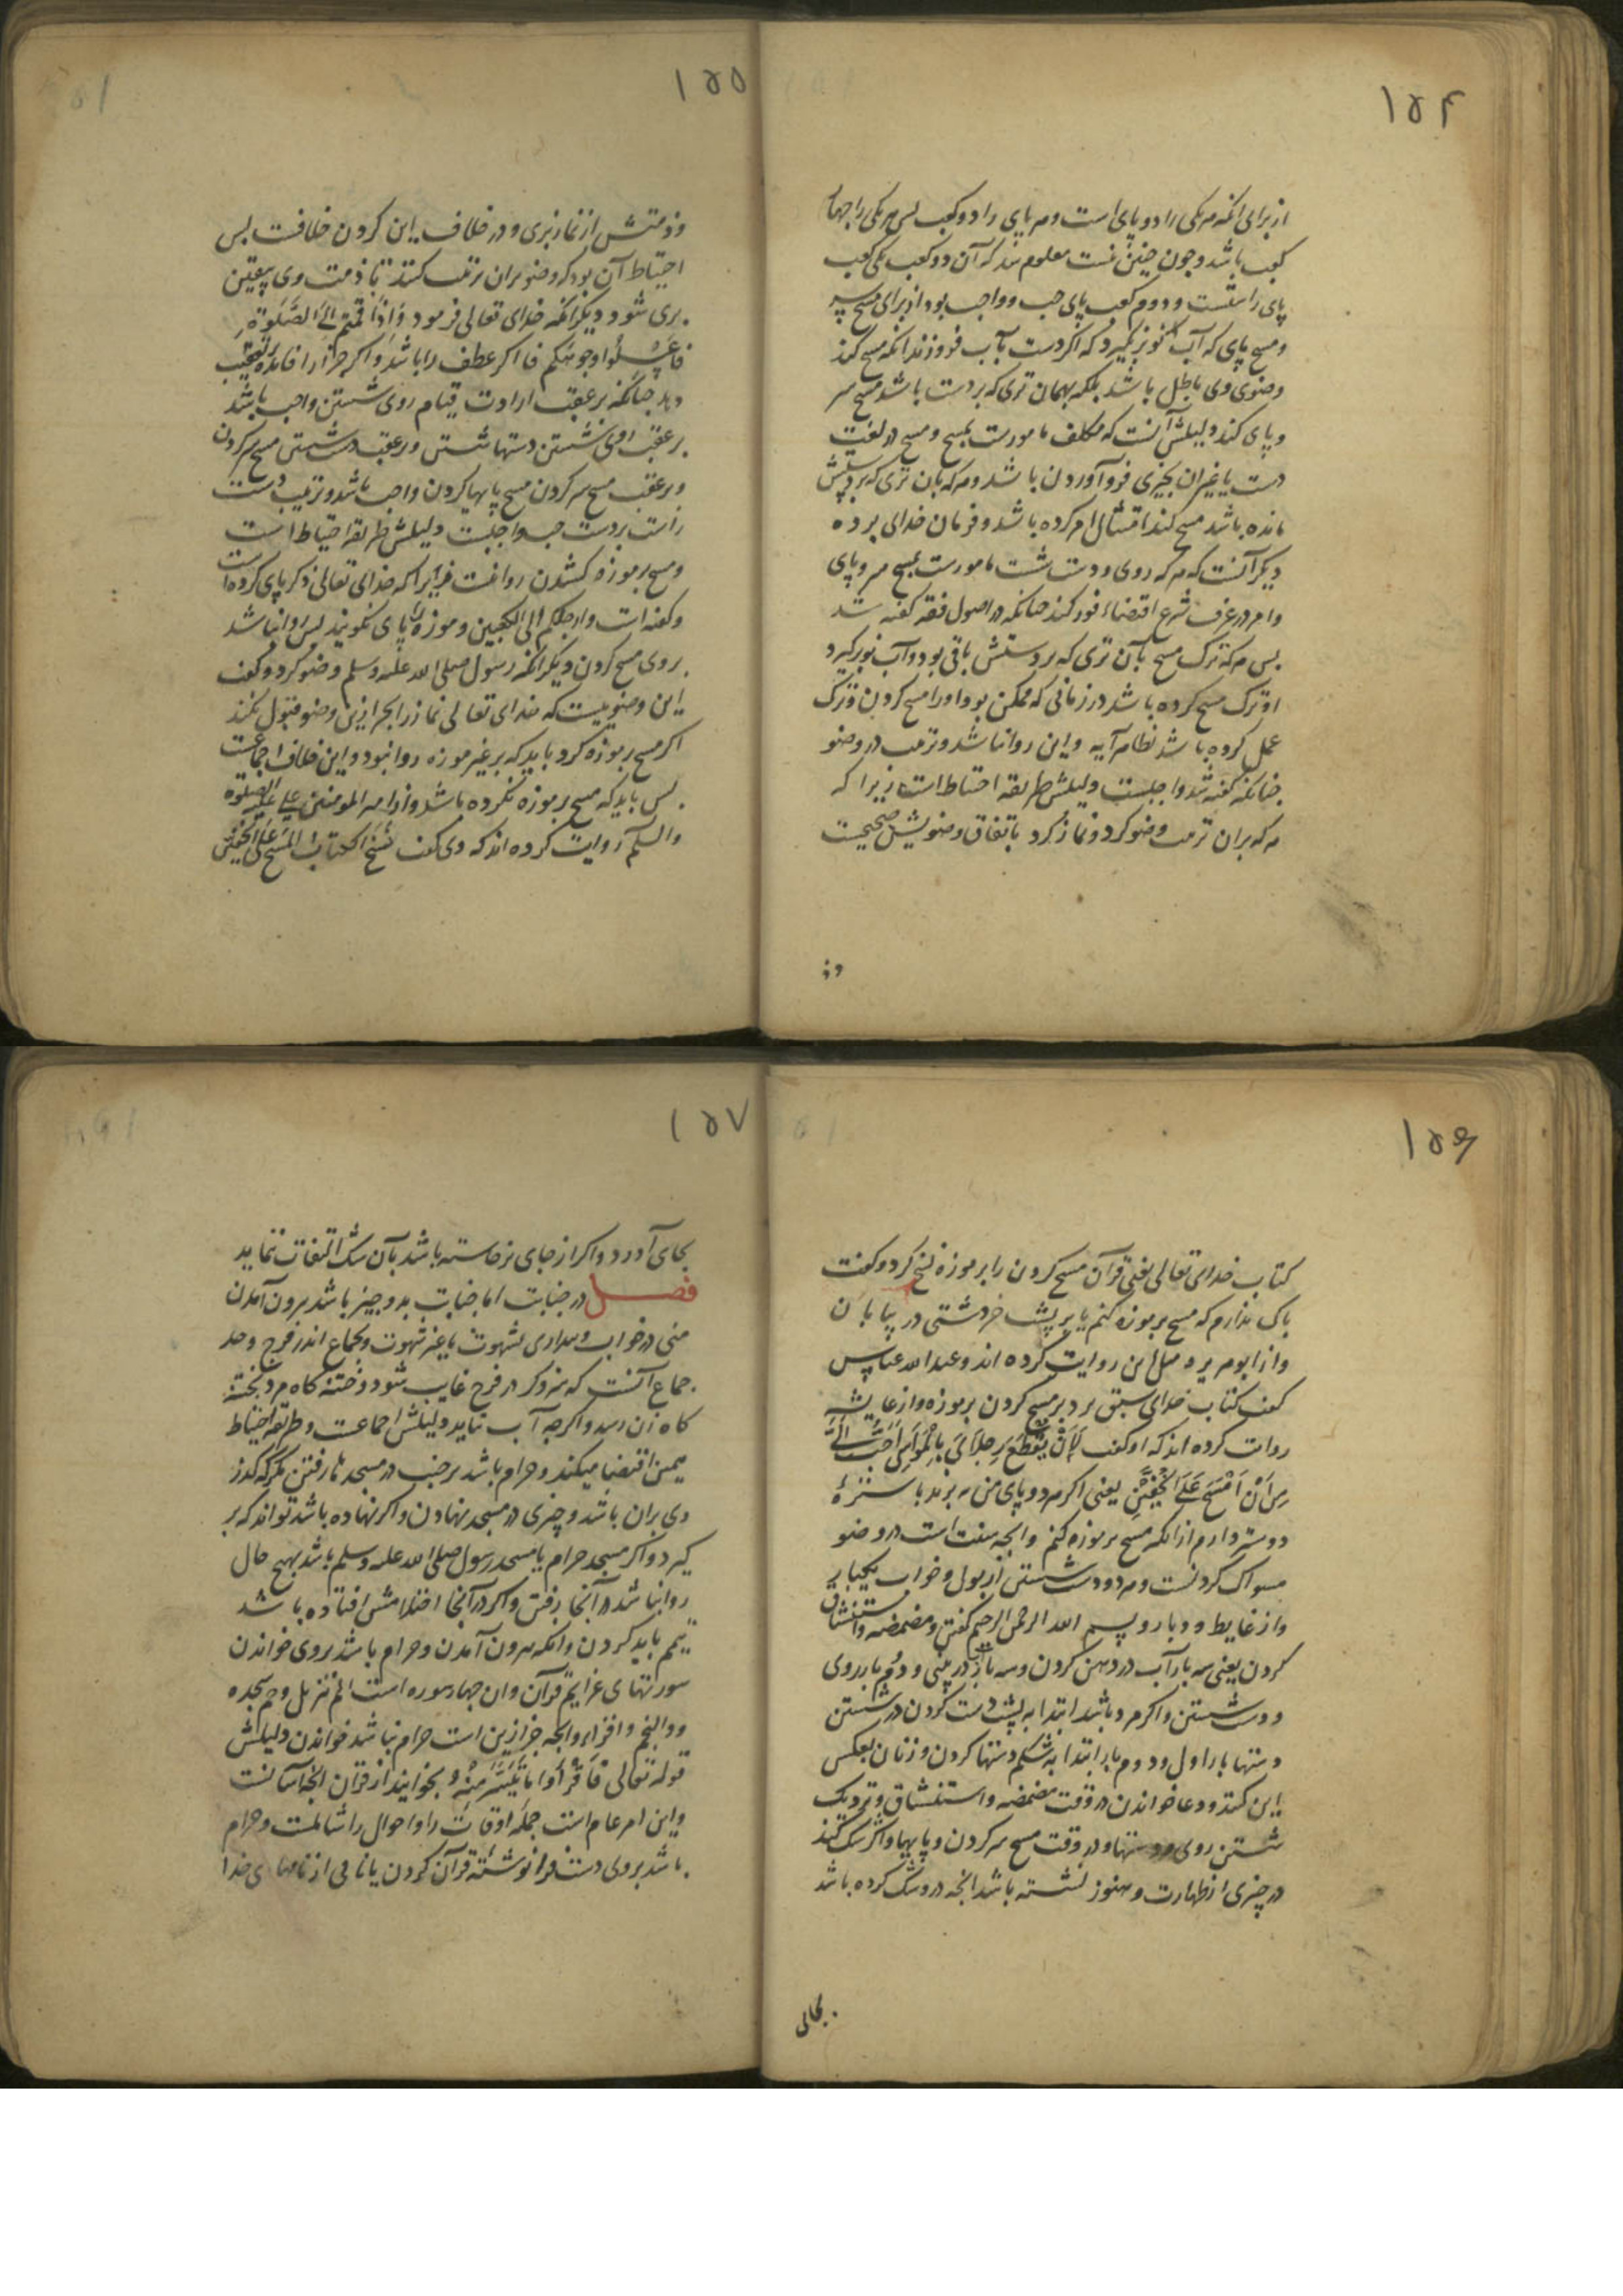 ۱۵۴
از برای آنکه هر یکی را دو پای است و هر پای را دو کعب بس هر یکی را جهار
کعب باشد و جون جنین نیست معلوم شد که آن دو کعب یکی کعب
پای راستست و دوم کعب پای جب و واجب بود از برای مسح سر
و مسح پای که آب نو برنگیرد که اگر دست بآب فرو زند انکه مسح کند
وضوی وی باطل باشد بلکه بهمان تری که بر دست باشد مسح سر
و پای کند دلیلش آنست که مکلف مامورست بمسح و مسح در لغت
دست یا غیر ان بجیزی فرو آوردن باشد و هر که بان تری که بر دستش
مانده باشد مسح کند امتثال امر کرده باشد و فرمان خدای برده
دیکر آنست که هر که روی و دست شست مامورست بمسح سر و پای
و امر در عرف شرع اقتضاء فور کند جنانکه در اصول فقه گفته شد
بس هر که ترک مسح بآن تری که بر دستش باقی بود و آب نو برگیرد
او ترک مسح کرده باشد در زمانی که ممکن بود او را مسح کردن و ترک
عمل کرده باشد بظاهر آیه و این روا نباشد و ترتیب در وضو
جنانکه گفته شد واجبست دلیلش طریقه احتیاط است زیرا که
هر که بران ترتیب وضو کرد و نماز کرد باتفاق وضویش صحیحست
وذ
۱۵۵
وذمتش از نماز بری و در خلاف این کردن خلافست بس
احتیاط آن بود که وضو بران ترتیب کنند تا ذمت وی بیقین
بری شود و دیکر انکه خدای تعالی فرمود وَاِذَا قُمْتُم اِلَی الصَّلٰوةِ
فَاغْسِلُوا وجوهَکم فا اکر عطف را باشد و اکر جزا را فایده تعقیب
دهد جنانکه بر عقب ارادت قیام روی شستن واجب باشد
بر عقب روی شستن دستها شستن و بر عقب دست شستن مسح سر کردن
و بر عقب مسح سر کردن مسح پایها کردن واجب باشد و ترتیب دست
راست بر دست جب واجبست دلیلش طریقه احتیاط است
و مسح بر موزه کشدن روا نیست زیرا که خدای تعالی ذکر پای کرده است
و گفته است وارجلکم الی الکعبین و موزه را پای نکویند بس روا نباشد
بر وی مسح کردن دیکر انکه رسول صلی الله علیه وسلم وضو کرد و گفت
این وضوییست که خدای تعالی نماز را بجز ازین وضو قبول نکند
اکر مسح بر موزه کرد باید که بر غیر موزه روا نبود و این خلاف اجماعست
بس باید که مسح بر موزه نکرده باشد و از امیر المومنین علی علیه الصلوة
والسلم روایت کرده اند که وی گفت نَسَخَ الکتابُ المَسْحَ عَلَی الخُفَّیْن
۱۵۶
کتاب خدای تعالی یعنی قرآن مسح کردن را بر موزه نسخ کرد و گفت
باک ندارم که مسح بر موزه کنم یا بر پشت خر دشتی در بیابان
و از ابو هریره مثل این روایت کرده اند و عبد الله عباس
گفت کتاب خدای سبق برد بر مسح کردن بر موزه و از عایشه
روایت کرده اند که او گفت لَاَنْ یُقْطَعَ رِجْلَایَ بِالْمَوَاسِی اَحَبُّ اِلَیَّ
مِنْ اَنْ اَمْسَحَ عَلَی الخُفَّیْنِ یعنی اکر هر دو پای من ببرند باستره
دوستر دارم از انکه مسح بر موزه کنم و انجه سنت است در وضو
مسواک کردنست و هر دو دست شستن از بول و خواب یکبار
و از غایط دو بار و بسم الله الرحمن الرحیم گفتن و مضمضه و استنشاق
کردن یعنی سه بار آب در دهن کردن و سه بار در بینی و دُوُم بار روی
و دست شستن و اکر مرد باشد ابتدا به پشت دست کردن در شستن
دستها بار اول و دوم بار ابتدا بشکم دستها کردن و زنان بعکس
این کنند و دعا خواندن در وقت مضمضه و استنشاق و نزدیک
شستن روی و دستها و در وقت مسح سر کردن و پایها و اکر شک کند
در جیزی از طهارت و هنوز نشسته باشد انجه در و شک کرده باشد
بجای
۱۵۷
بجای آورد و اکر از جای برخاسته باشد بآن شک التفات ننماید
فصل در جنابت اما جنابت بدو جیز باشد بیرون آمدن
منی در خواب و بیداری بشهوت یا غیر شهوت و بجماع اندر فرج و حد
جماع آنست که سر ذکر در فرج غایب شود و ختنه گاه مرد بختنه
گاه زن رسد و اکرجه آب نیاید دلیلش اجماعست و طریقه احتیاط
همین اقتضا میکند و حرام باشد بر جنب در مسجدها رفتن مکر که گذر
وی بران باشد و جیزی در مسجد نهادن و اکر نهاده باشد تواند که بر
گیرد و اکر مسجد حرام یا مسجد رسول صلی الله علیه وسلم باشد بهیج حال
روا نباشد در آنجا رفتن و اکر در آنجا احتلامش افتاده باشد
تیمم باید کردن و انکه بیرون آمدن و حرام باشد بر وی خواندن
سورتهای عزایم قرآن و ان جهار سوره است الم تنزیل و حم سجده
و والنجم و اقراء و انجه جز ازین است حرام نباشد خواندن دلیلش
قوله تعالی فَاقْرَأُوا مَا تَیَسَّرَ مِنْهُ و بخوانید از قرآن انجه آسانست
و این امر عام است جمله اوقات را و احوال را شاملست و حرام
باشد بر وی دست فرا نوشته قرآن کردن یا نامی از نامهای خدا